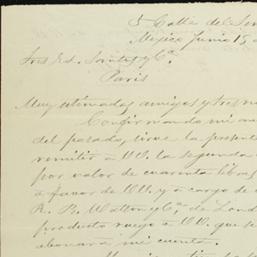 5 Calle del
Mexico Junio 15
Sres
Paris
Muy estimados amigos y
Confirmando mi
del pasado, sirve la presente
remitir á VS. la segunda
por valor de cuarenta libras
á favor de VV. y á cargo de
R. P. Watton y Cª, de Lond
producto ruego á VV. que se
abonará mi cuenta.